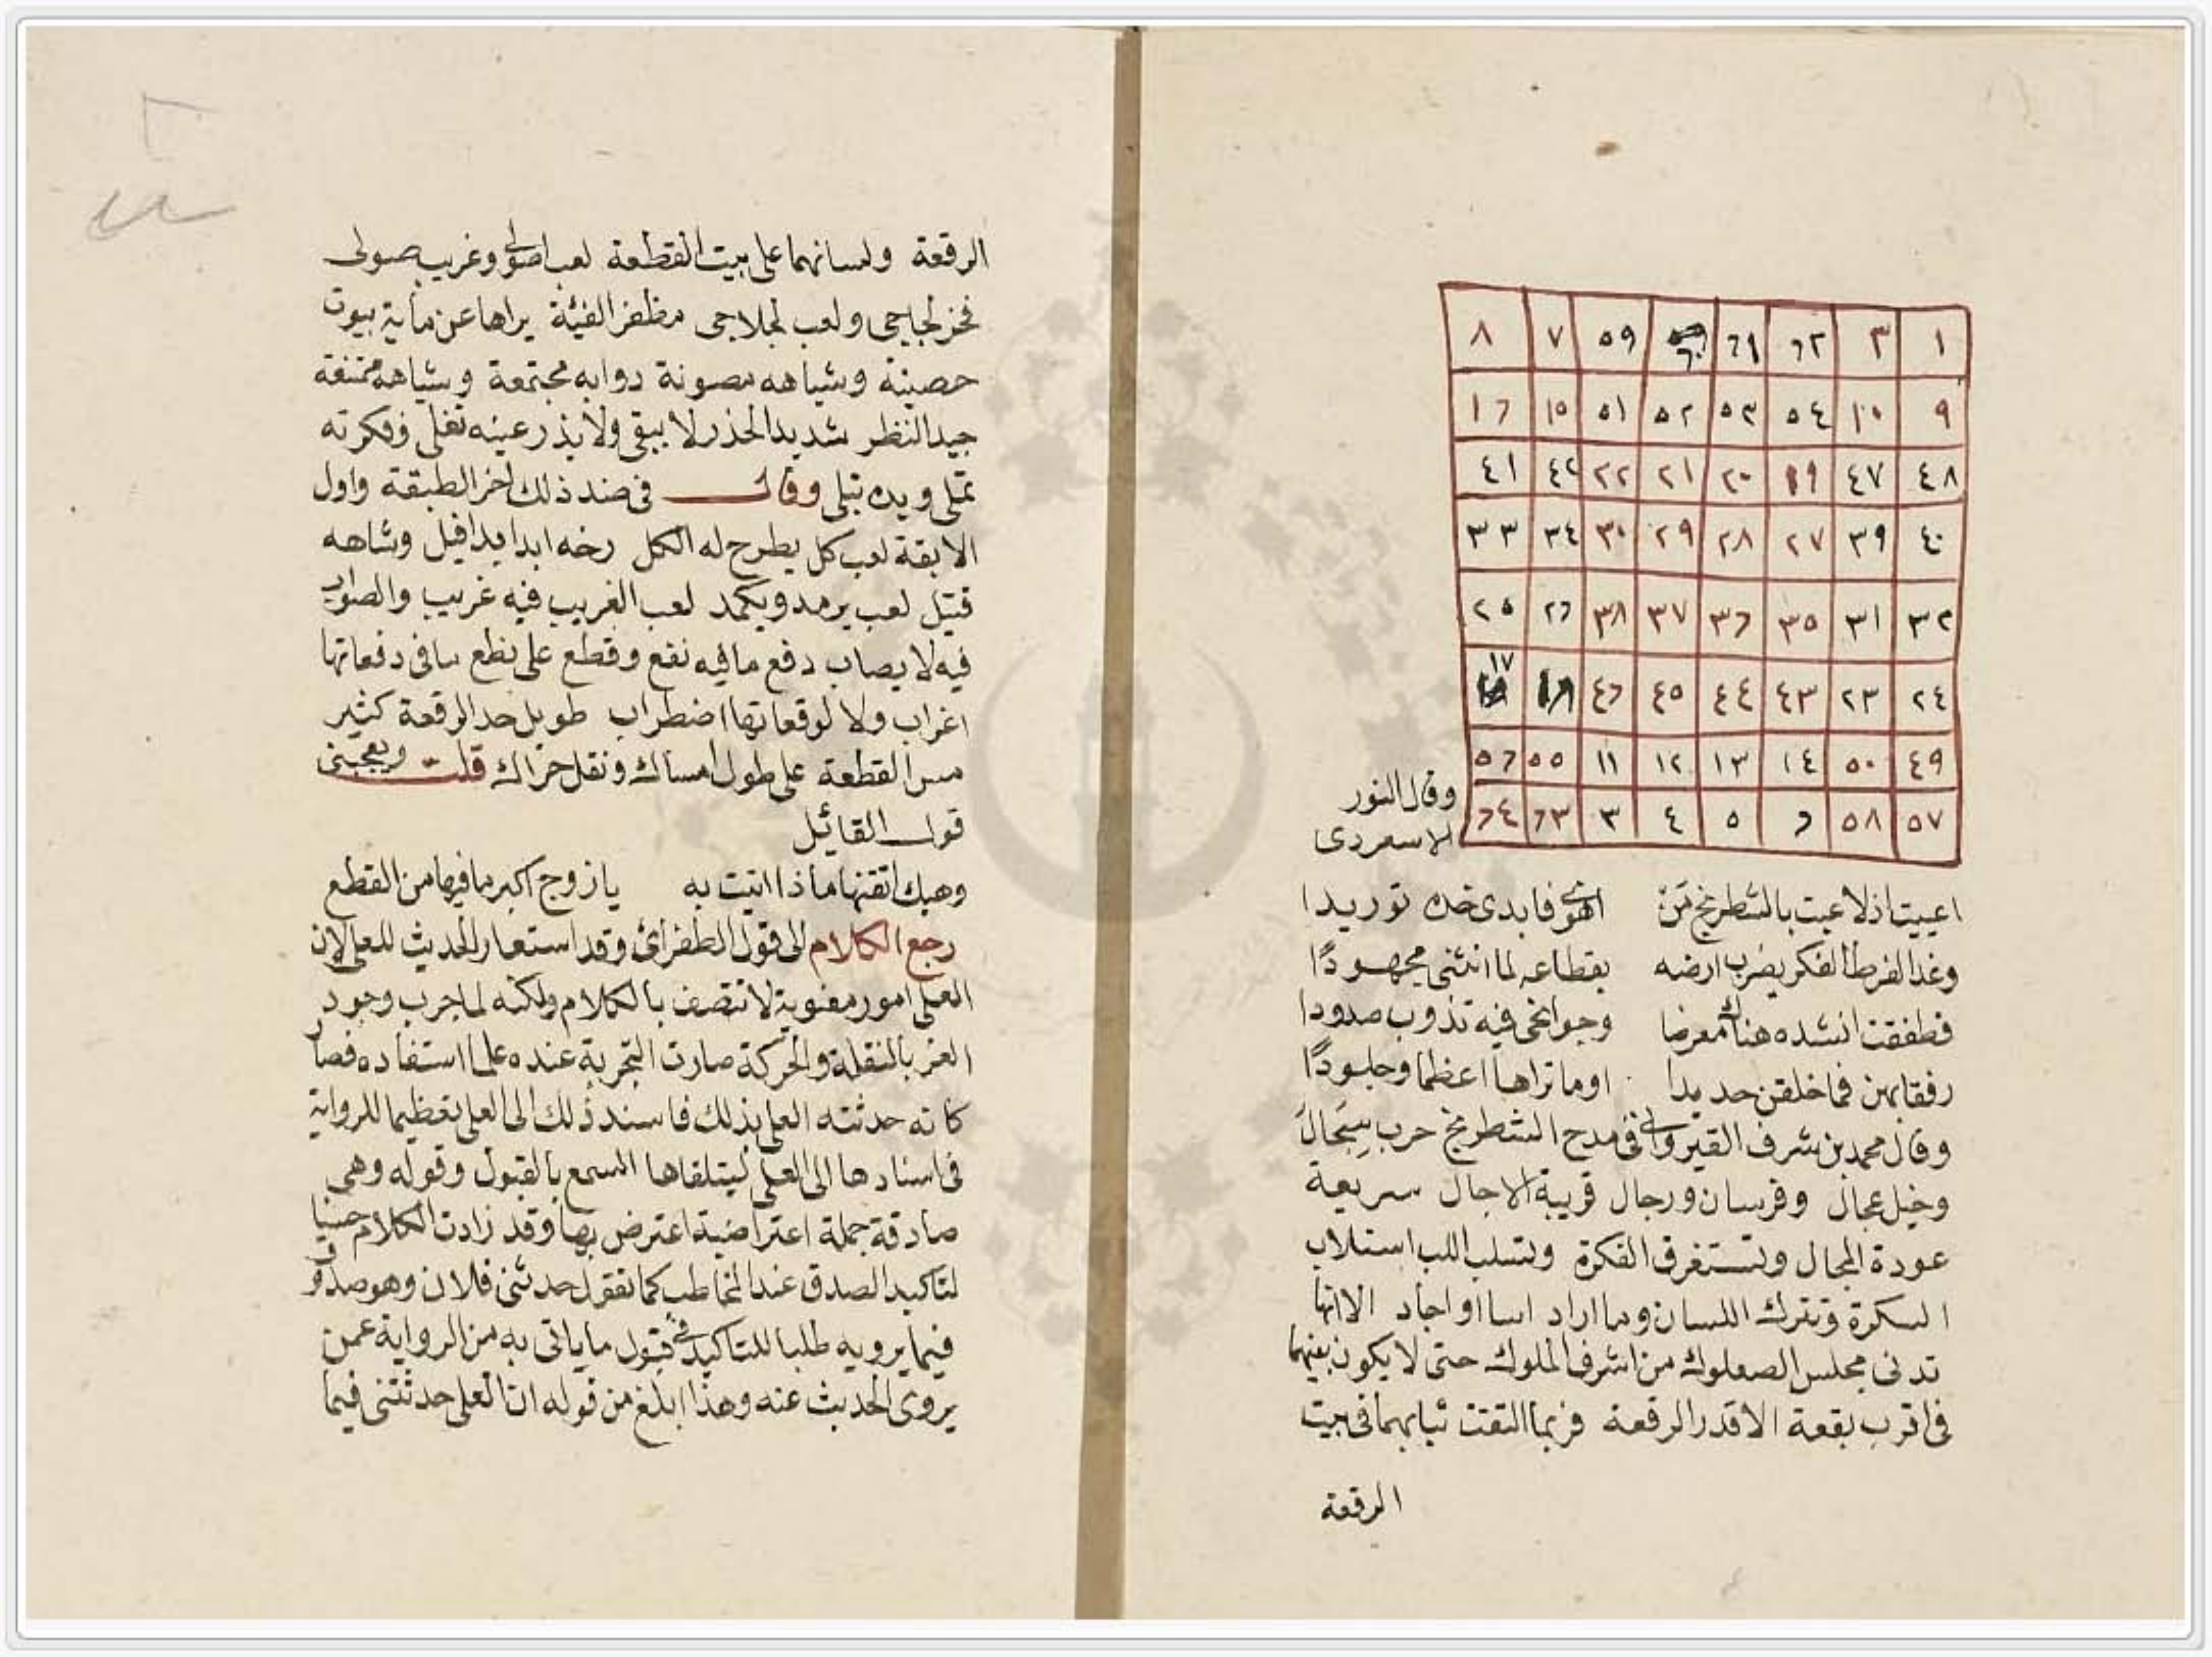 ٨ ٧ ٥٩ ٦٠ ٦١ ٦٢ ٣ ١
١٦ ١٥ ٥١ ٥٢ ٥٣ ٥٤ ١٠ ٩
٤١ ٤٢ ٢٢ ٢١ ٢٠ ١٩ ٤٧ ٤٨
٣٣ ٣٤ ٣٠ ٢٩ ٢٨ ٢٧ ٣٩ ٤٠
٢٥ ٢٦ ٣٨ ٣٧ ٣٦ ٣٥ ٣١ ٣٢
١٧ ١٨ ٤٦ ٤٥ ٤٤ ٤٣ ٢٣ ٢٤
٥٦ ٥٥ ١١ ١٢ ١٣ ١٤ ٥٠ ٤٩
٦٤ ٦٣ ٣ ٤ ٥ ٦ ٥٨ ٥٧
وقال النور
الاسعردى
اعييت اذ لاعبت بالشطرنج من اهوى فابدى خده توريدا
وغدا لفرط الفكر يضرب ارضه بقطاعه لما انثنى مجهودًا
فطفقت انشده هناك معرضا وجوانحى فيه تذوب صدودا
رفقا بهن فما خلقن حديدا اوما تراها اعظما وجلودًا
وقال محمد بن شرف القيروانى فى مدح الشطرنج حرب سجال
وخيل عجال وفرسان ورجال قريبة الاجال سريعة
عودة المجال وتستغرق الفكرة وتسلب اللب استلاب
السكرة وتترك اللسان وما اراد اساا واجاد الا انها
تدنى مجلس الصعلوك من اشرف الملوك حتى لا يكون بينهما
فى اقرب بقعة الا قدر الرقعة فربما التقت ثيابهما فى بيت
الرقعة
الرقعة ولسانهما على بيت القطعة لعب اصولى وغريب صولى
ولعب لجلاجى مظفر الفيئة يراها عن ماية بيوت
حصينة وشياهه مصونة دوابه مجتمعة وشياهه ممتنعة
جيد النظر شديد الحذر لا يبقى ولا يذر عينه تغلى وفكرته
تملى ويده تبلى وقال فى ضد ذلك اخر الطبقة واول
الابقة لعب كل يطرح له الكل رخه ابدا يدا فيل وشاهه
قتيل لعب يرمد ويكمد لعب الغريب فيه غريب والصواب
فيه لا يصاب دفع ما فيه نفع وقطع على نطع ما فى دفعاتها
اغراب ولا لوقعاتها اضطراب طويل حد الرقعة كثير
مس القطعة على طول امساك ونقل حراك قلت ويعجبنى
قول القائل
وهبك اتقنتها ماذا اتيت به يا زوج اكبر ما فيها من القطع
رجع الكلام الى قول الطغرائ وقد استعار الحديث للعلى لان
العلى امور معنوية لا تتصف بالكلام ولكنه لما جرب وجود
العز بالنقلة والحركة صارت التجربة عنده علما استفاده فصار
كانه حدثته العلى بذلك فاسند ذلك الى العلى تعظيما للرواية
فى اسنادها الى العلى ليتلقاها السمع بالقبول وقوله وهى
صادقة جملة اعتراضية اعترض بها وقد زادت الكلام حسنا
لتاكيد الصدق عند المخاطب كما تقول حدثنى فلان وهو صدوق
فيما يرويه طلبا للتاكيد فى قبول ما ياتى به من الرواية عمن
يروى الحديث عنه وهذا ابلغ من قوله ان العلى حدثتنى فيما